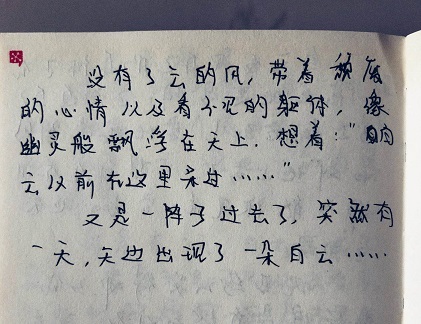 没有了云的风，带着颓废
的心情以及看不见的躯体，像
幽灵般飘浮在天上．想着："白
云以前在这里来过……"
又是一阵子过去了，突然有
一天，天边出现了一朵白云……